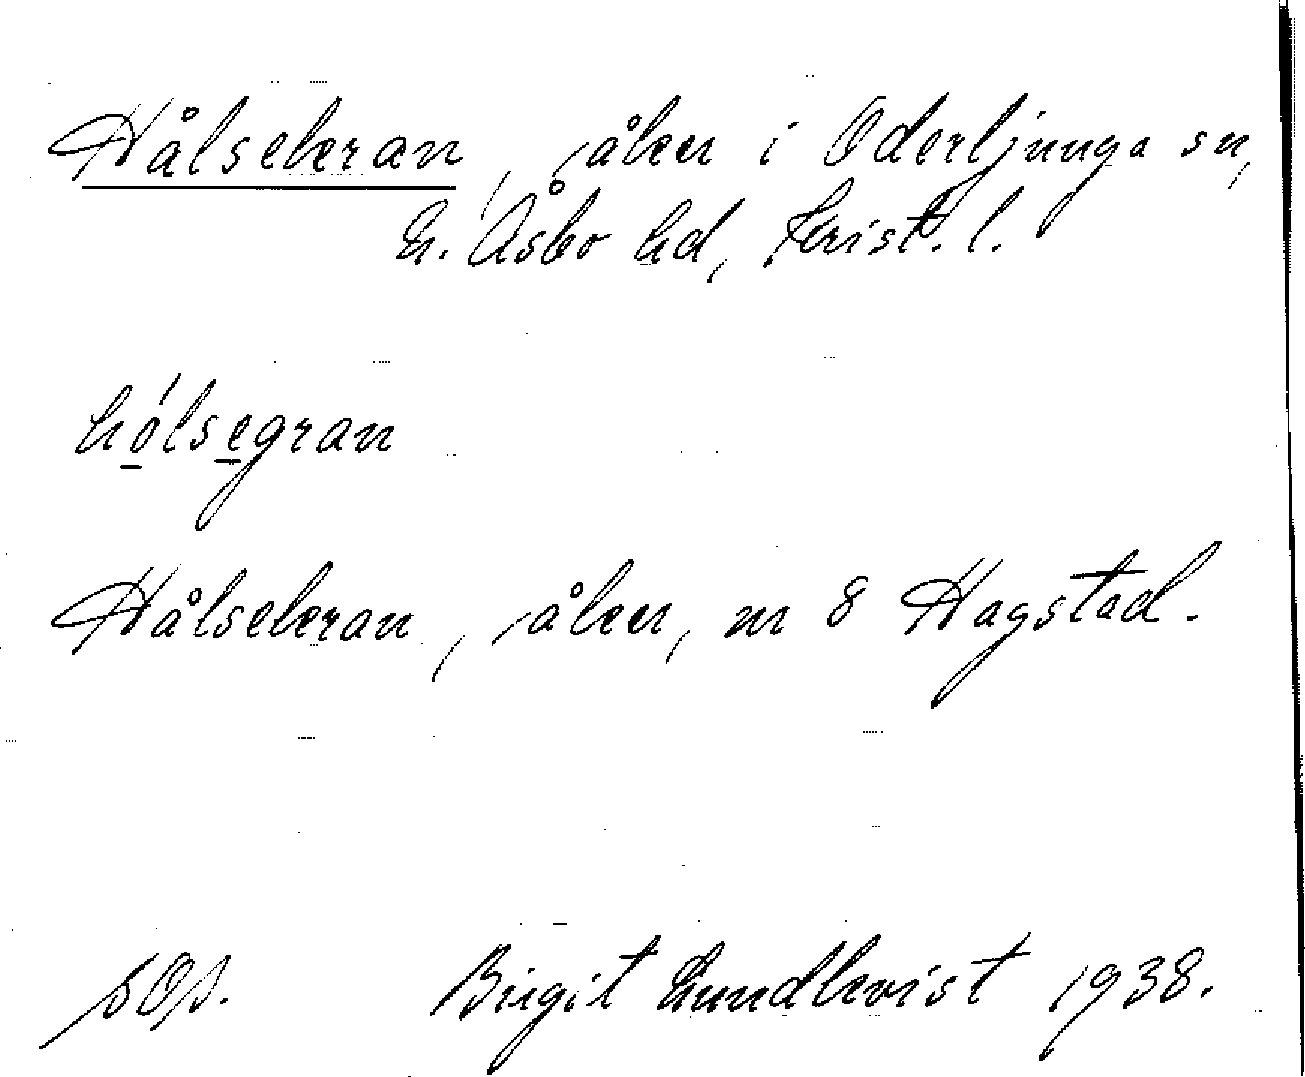 Hålsekran, åker i Oderljunga sn,
N. Åsbo hd, Krist. l.
hólsegran
Hålsekran, åker, nr 8 Hagstad.
Birgit Lundkvist 1938.